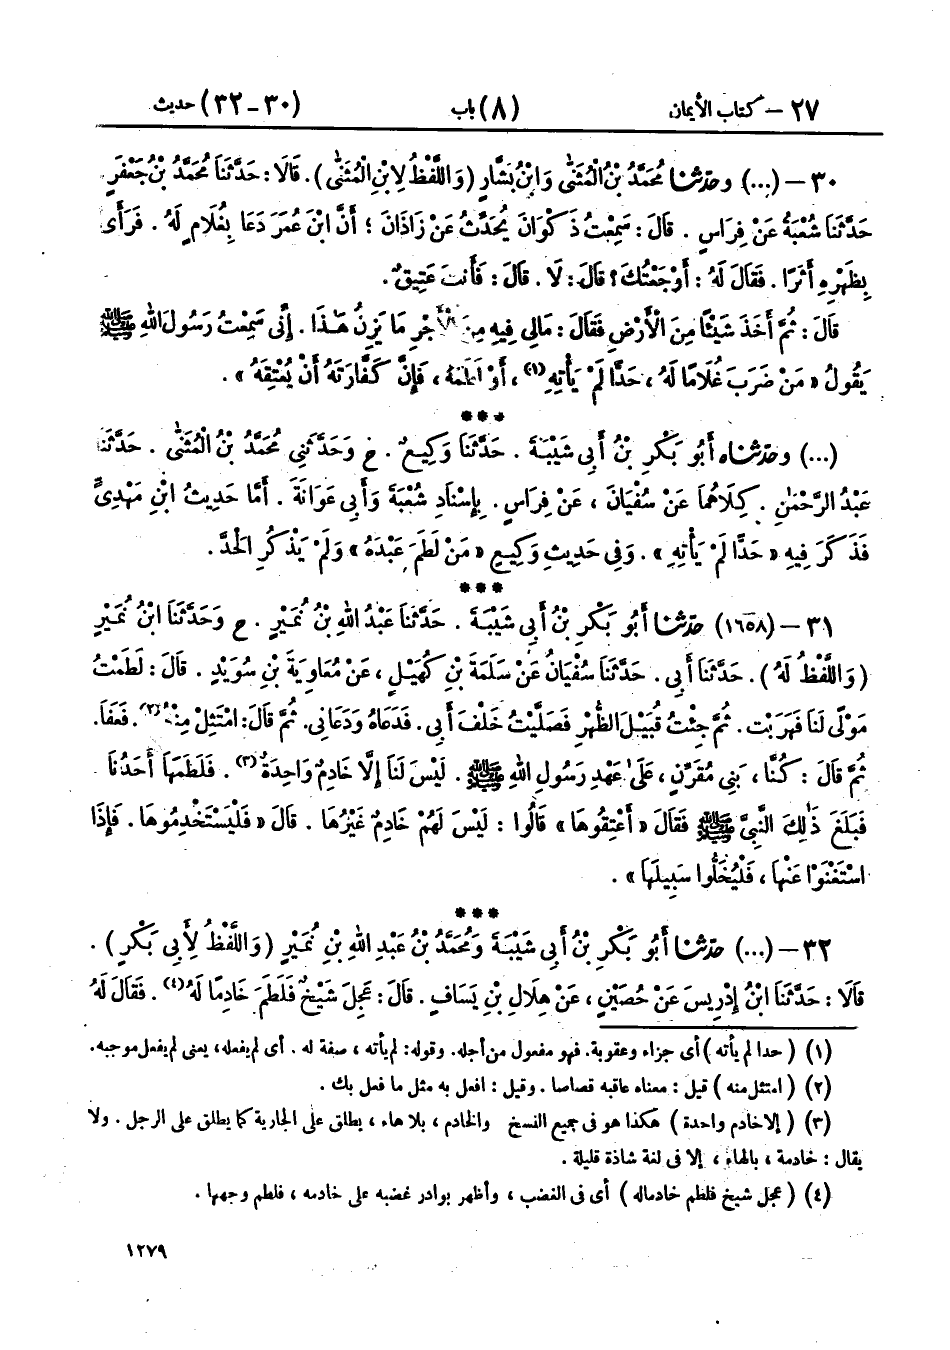 ٢٧ – كتاب الأيمان (٨) باب (٣٠ – ٣٢) حديث
٣٠ – (...) وحدّثنا مُحَمَّدُ بْنُ الْمُثَنَّىٰ وَابْنُ بَشَّارٍ (وَاللَّفْظُ لِابْنِ الْمُثَنَّىٰ). قَالَا: حَدَّثَنَا مُحَمَّدُ بْنُ جَعْفَرٍ.
حَدَّثَنَا شُعْبَةُ عَنْ فِرَاسٍ. قَالَ: سَمِعْتُ ذَكْوَانَ يُحَدِّثُ عَنْ زَاذَانَ؛ أَنَّ ابْنَ عُمَرَ دَعَا بِغُلَامٍ لَهُ. فَرَأَىٰ
بِظَهْرِهِ أَثَرًا. فَقَالَ لَهُ: أَوْجَعْتُكَ؟ قَالَ: لَا. قَالَ: فَأَنْتَ عَتِيقٌ.
قَالَ: ثُمَّ أَخَذَ شَيْئًا مِنَ الْأَرْضِ فَقَالَ: مَالِي فِيهِ مِنَ الْأَجْرِ مَا يَزِنُ هَٰذَا. إِنِّي سَمِعْتُ رَسُولَ اللهِ ﷺ
يَقُولُ « مَنْ ضَرَبَ غُلَامًا لَهُ، حَدًّا لَمْ يَأْتِهِ(١)، أَوْ لَطَمَهُ، فَإِنَّ كَفَّارَتَهُ أَنْ يُعْتِقَهُ ».
***
(...) وحدّثناه أَبُو بَكْرِ بْنُ أَبِي شَيْبَةَ. حَدَّثَنَا وَكِيعٌ. ح وَحَدَّثَنِي مُحَمَّدُ بْنُ الْمُثَنَّىٰ. حَدَّثَنَا
عَبْدُ الرَّحْمَٰنِ. كِلَاهُمَا عَنْ سُفْيَانَ، عَنْ فِرَاسٍ. بِإِسْنَادِ شُعْبَةَ وَأَبِي عَوَانَةَ. أَمَّا حَدِيثُ ابْنِ مَهْدِيٍّ
فَذَكَرَ فِيهِ « حَدًّا لَمْ يَأْتِهِ ». وَفِي حَدِيثِ وَكِيعٍ « مَنْ لَطَمَ عَبْدَهُ » وَلَمْ يَذْكُرِ الْحَدَّ.
***
٣١ – (١٦٥٨) حدّثنا أَبُو بَكْرِ بْنُ أَبِي شَيْبَةَ. حَدَّثَنَا عَبْدُ اللهِ بْنُ نُمَيْرٍ. ح وَحَدَّثَنَا ابْنُ نُمَيْرٍ
(وَاللَّفْظُ لَهُ). حَدَّثَنَا أَبِي. حَدَّثَنَا سُفْيَانُ عَنْ سَلَمَةَ بْنِ كُهَيْلٍ، عَنْ مُعَاوِيَةَ بْنِ سُوَيْدٍ. قَالَ: لَطَمْتُ
مَوْلًى لَنَا فَهَرَبْتُ. ثُمَّ جِئْتُ قُبَيْلَ الظُّهْرِ فَصَلَّيْتُ خَلْفَ أَبِي. فَدَعَاهُ وَدَعَانِي. ثُمَّ قَالَ: امْتَثِلْ مِنْهُ(٢). فَعَفَا.
ثُمَّ قَالَ: كُنَّا، بَنِي مُقَرِّنٍ، عَلَىٰ عَهْدِ رَسُولِ اللهِ ﷺ. لَيْسَ لَنَا إِلَّا خَادِمٌ وَاحِدَةٌ(٣). فَلَطَمَهَا أَحَدُنَا
فَبَلَغَ ذَٰلِكَ النَّبِيَّ ﷺ فَقَالَ « أَعْتِقُوهَا » قَالُوا: لَيْسَ لَهُمْ خَادِمٌ غَيْرُهَا. قَالَ « فَلْيَسْتَخْدِمُوهَا. فَإِذَا
اسْتَغْنَوْا عَنْهَا، فَلْيُخَلُّوا سَبِيلَهَا ».
***
٣٢ – (...) حدّثنا أَبُو بَكْرِ بْنُ أَبِي شَيْبَةَ وَمُحَمَّدُ بْنُ عَبْدِ اللهِ بْنِ نُمَيْرٍ (وَاللَّفْظُ لِأَبِي بَكْرٍ).
قَالَا: حَدَّثَنَا ابْنُ إِدْرِيسَ عَنْ حُصَيْنٍ، عَنْ هِلَالِ بْنِ يَسَافٍ. قَالَ: عَجِلَ شَيْخٌ فَلَطَمَ خَادِمًا لَهُ(٤). فَقَالَ لَهُ
(١) (حدا لم يأته) أى جزاء وعقوبة. فهو مفعول من أجله. وقوله: لم يأته، صفة له. أى لم يفعله، يعنى لم يفعل موجبه.
(٢) (امتثل منه) قيل: معناه عاقبه قصاصا. وقيل: افعل به مثل ما فعل بك.
(٣) (إلا خادم واحدة) هكذا هو فى جميع النسخ والخادم، بلا هاء، يطلق على الجارية كما يطلق على الرجل. ولا
يقال: خادمة، بالهاء، إلا فى لغة شاذة قليلة.
(٤) (عجل شيخ فلطم خادما له) أى فى الغضب، وأظهر بوادر غضبه على خادمه، فلطم وجهها.
١٢٧٩